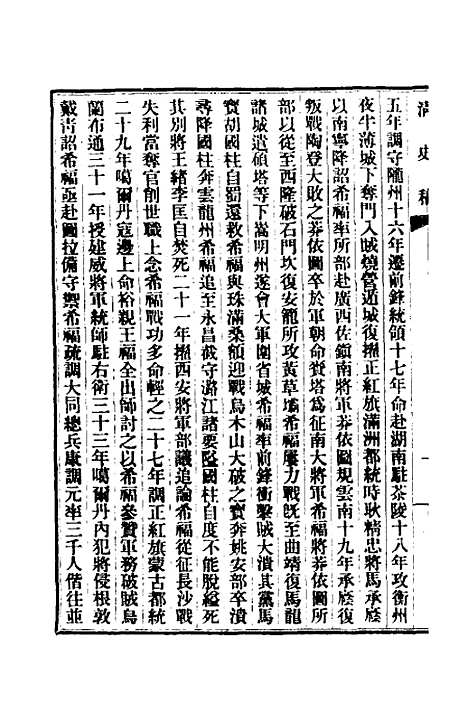 清史稿
五年調守隨州十六年遷前鋒統領十七年命赴湖南駐茶陵十八年攻衡州
夜半薄城下奪門入賊燒營遁城復擢正紅旗滿洲都統時耿精忠將馬承廕復
以南寧降詔希福率所部赴廣西佐鎮南將軍莽依圖規雲南十九年承廕復
叛戰陶登大敗之莽依圖卒於軍朝命賚塔爲征南大將軍希福將莽依圖所
部以從至西隆破石門坎復安籠所攻黃草壩希福屢力戰旣至曲靖復馬龍
諸城遣碩塔等下嵩明州遂會大軍圍省城希福率前鋒衝擊賊大潰其黨馬
寶胡國柱自蜀還救希福與珠滿桑額迎戰烏木山大破之寶奔姚安部卒潰
尋降國柱奔雲龍州希福追至永昌截守潞江諸要隘國柱自度不能脫縊死
其別將王緒李匡自焚死二十一年擢西安將軍部議追論希福從征長沙戰
失利當奪官削世職上念希福戰功多命輕之二十七年調正紅旗蒙古都統
二十九年噶爾丹寇邊上命裕親王福全出師討之以希福參贊軍務破賊烏
蘭布通三十一年授建威將軍統師駐右衛三十三年噶爾丹內犯將侵根敦
戴青詔希福亟赴圖拉備守禦希福疏調大同總兵康調元率三千人偕往並